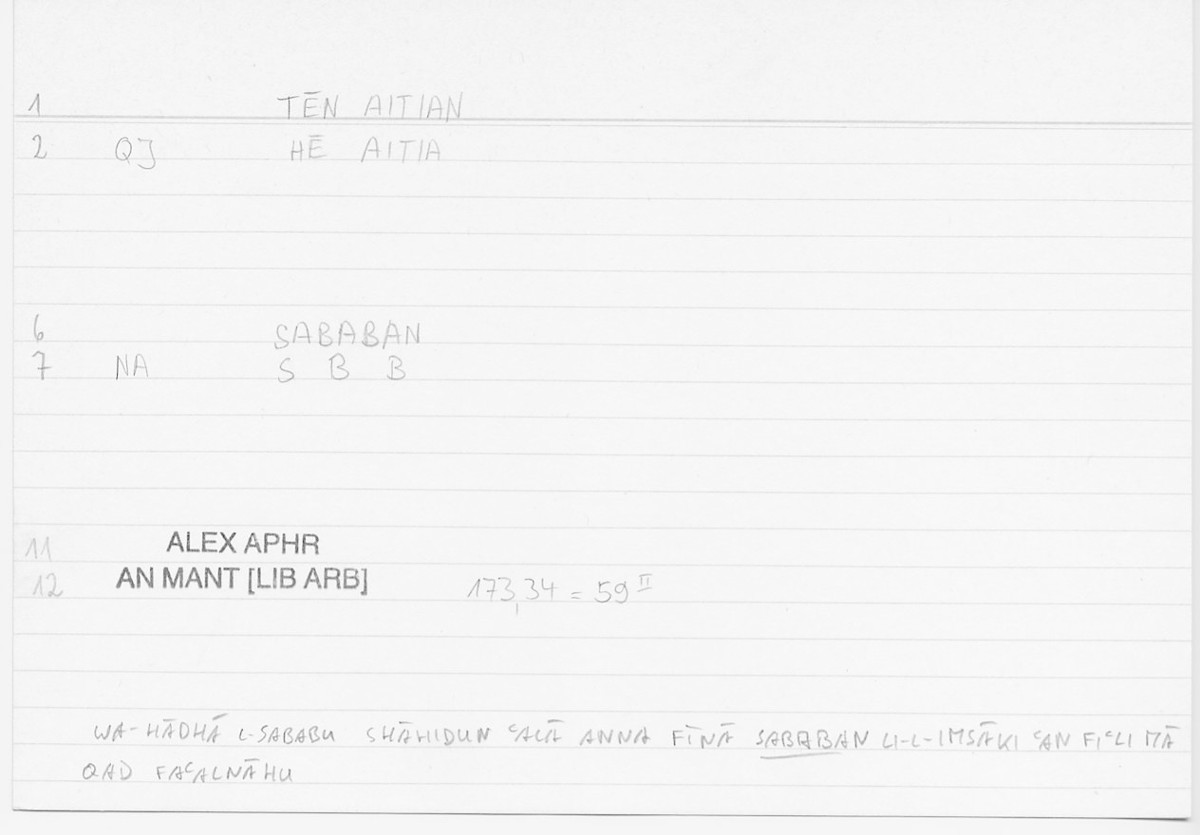 1 TĒN AITIAN
2 QJ HĒ AITIA
6 SABABAN
7 NA S B B
11 ALEX APHR
12 AN MANT [LIB ARB] 173,34 = 59 II
WA-HĀDHĀ L-SABABU SHĀHIDUN ʿALĀ ANNA FĪNĀ SABABAN LI-L-IMSĀKI ʿAN FIʿLI MĀ
QAD FAʿALNĀHU